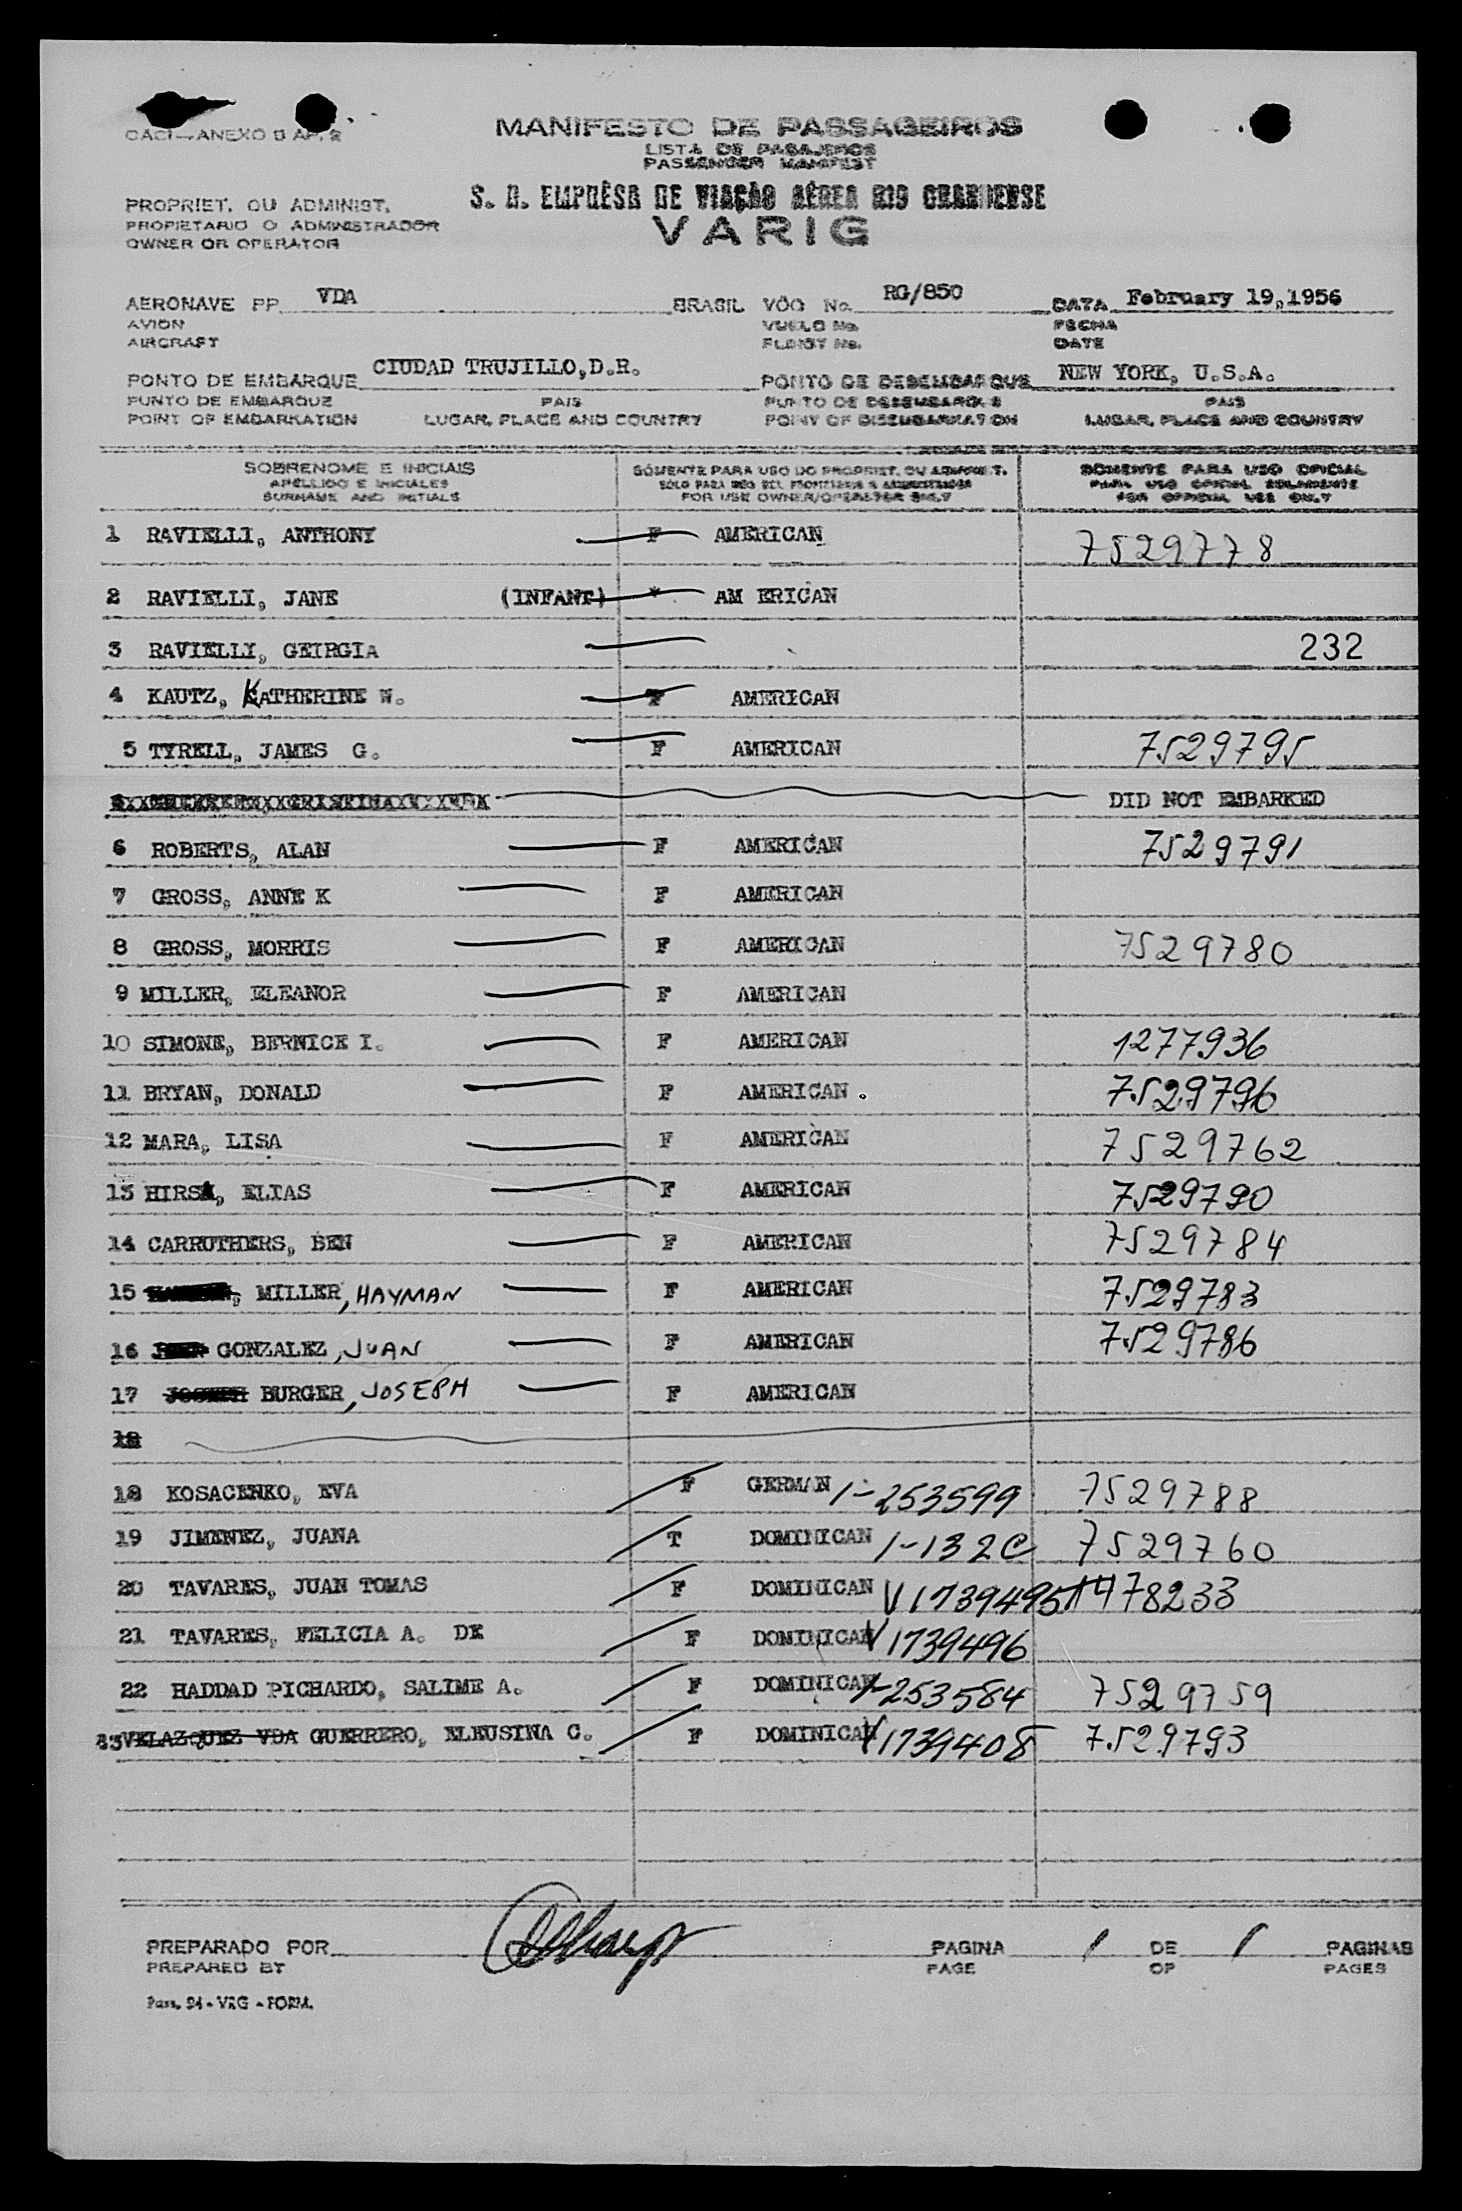 OACI—ANEXO 9 AP. 2
MANIFESTO DE PASSAGEIROS
LISTA DE PASAJEROS
PASSENGER MANIFEST
PROPRIET. OU ADMINIST.
PROPIETARIO O ADMINISTRADOR
OWNER OR OPERATOR
S. A. EMPRÊSA DE VIAÇÃO AÉREA RIO GRANDENSE
VARIG
AERONAVE PP VDA BRASIL VÔO No. RG/850 DATA February 19,1956
AVION VUELO No. FECHA
AIRCRAFT FLIGHT No. DATE
PONTO DE EMBARQUE CIUDAD TRUJILLO,D.R. PONTO DE DESEMBARQUE NEW YORK, U.S.A.
PUNTO DE EMBARQUE PAIS PUNTO DE DESEMBARQUE PAIS
POINT OF EMBARKATION LUGAR, PLACE AND COUNTRY POINT OF DISEMBARKATION LUGAR, PLACE AND COUNTRY
SOBRENOME E INICIAIS SÓMENTE PARA USO DO PROPRIET. OU ADMINIST. SOMENTE PARA USO OFICIAL
APELLIDO E INICIALES SOLO PARA USO DEL PROPIETARIO O ADMINISTRADOR PARA USO OFICIAL SOLAMENTE
SURNAME AND INITIALS FOR USE OWNER/OPERATOR ONLY FOR OFFICIAL USE ONLY
1 RAVIELLI, ANTHONY F AMERICAN 7529778
2 RAVIELLI, JANE (INFANT) * AM ERICAN
3 RAVIELLY, GEIRGIA 232
4 KAUTZ, KATHERINE W. F AMERICAN
5 TYRELL, JAMES G. F AMERICAN 7529795
DID NOT EMBARKED
6 ROBERTS, ALAN F AMERICAN 7529791
7 GROSS, ANNE K F AMERICAN
8 GROSS, MORRIS F AMERICAN 7529780
9 MILLER, ELEANOR F AMERICAN
10 SIMONE, BERNICE I. F AMERICAN 1277936
11 BRYAN, DONALD F AMERICAN. 7529796
12 MARA, LISA F AMERICAN 7529762
13 HIRSA, ELIAS F AMERICAN 7529790
14 CARRUTHERS, BEN F AMERICAN 7529784
15 MILLER, HAYMAN F AMERICAN 7529783
16 JUAN GONZALEZ, JUAN F AMERICAN 7529786
17 JOSEPH BURGER, JOSEPH F AMERICAN
18
18 KOSACENKO, EVA F GERMAN 1-253599 7529788
19 JIMENEZ, JUANA T DOMINICAN 1-132C 7529760
20 TAVARES, JUAN TOMAS F DOMINICAN V1739495 1478233
21 TAVARES, FELICIA A. DE F DOMINICAN V1739496
22 HADDAD PICHARDO, SALIME A. F DOMINICAN 1-253584 7529759
23 VELAZQUEZ VDA GUERRERO, ELEUSINA C. F DOMINICAN V1739408 7529793
PREPARADO POR PAGINA 1 DE 1 PAGINAS
PREPARED BY PAGE OF PAGES
Pass. 94 - VRG - FORM.